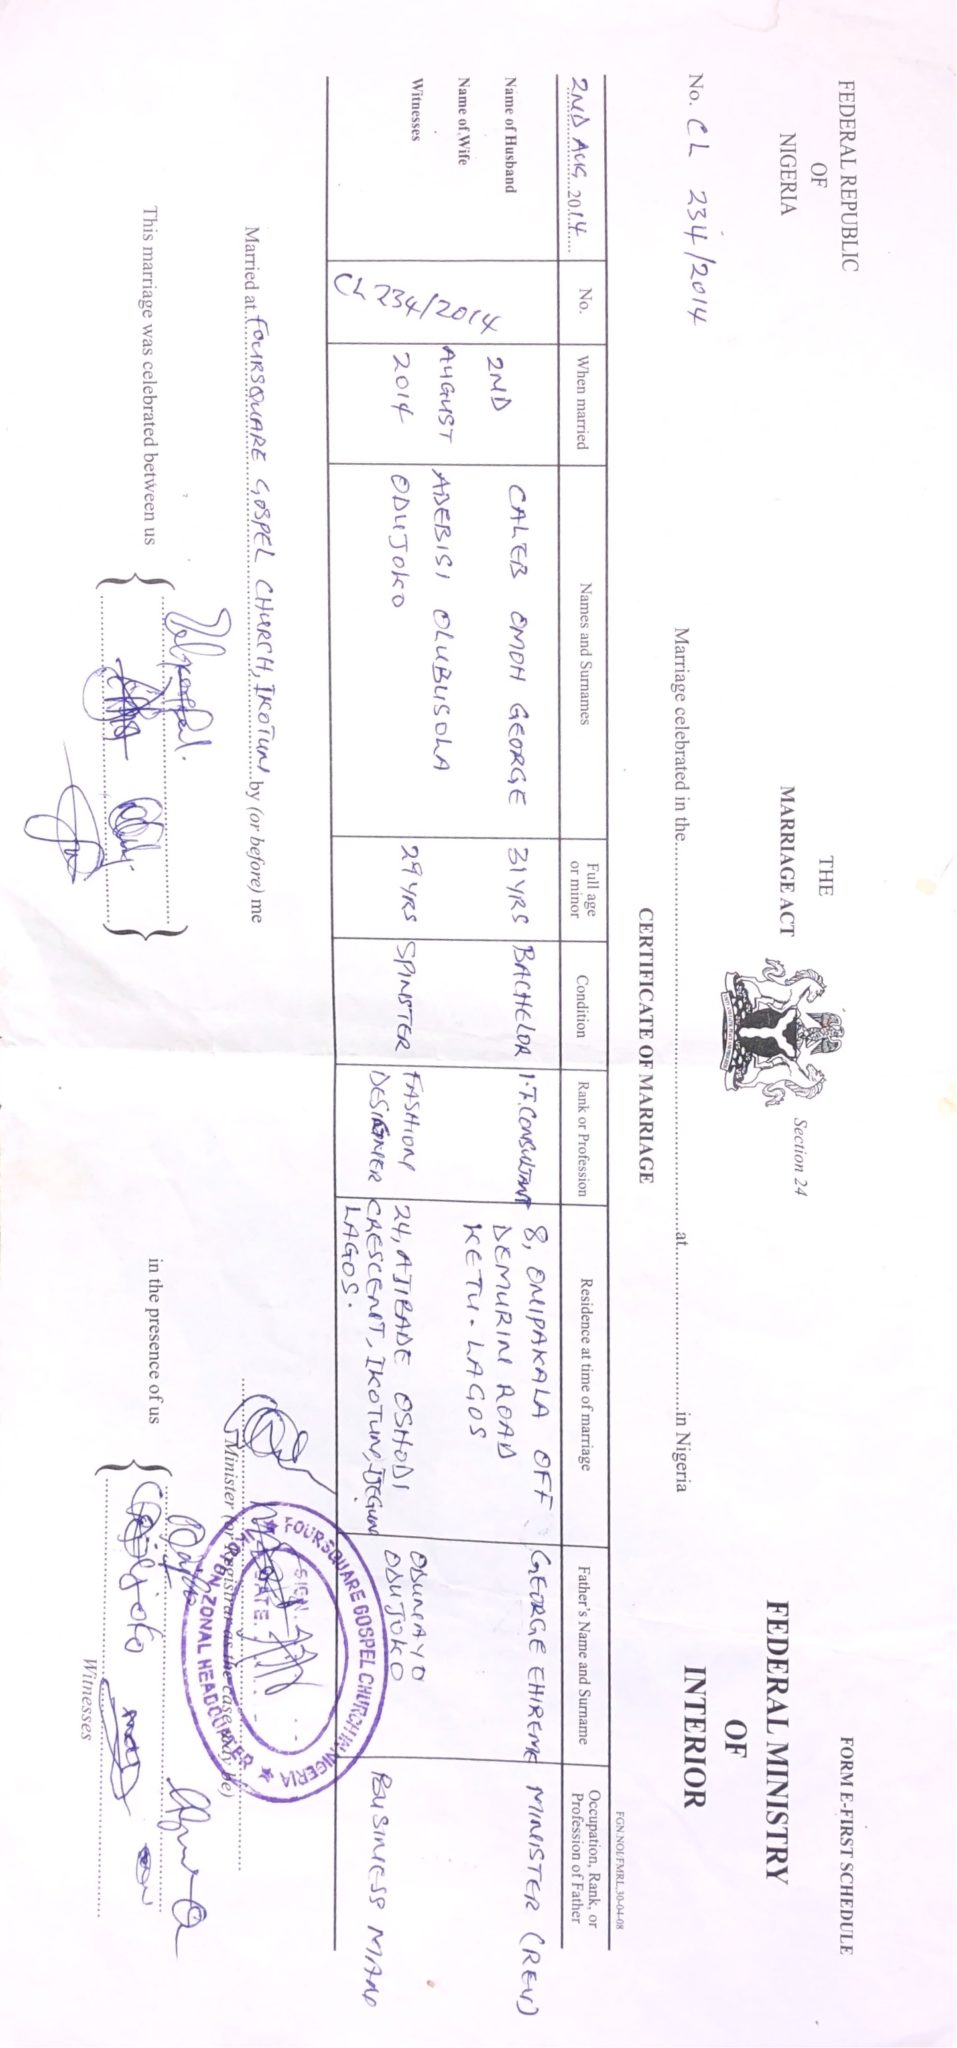 FEDERAL REPUBLIC
OF
NIGERIA
THE
MARRIAGE ACT
Section 24
FORM E-FIRST SCHEDULE
FEDERAL MINISTRY
OF
INTERIOR
No. CL 234/2014
CERTIFICATE OF MARRIAGE
Marriage celebrated in the at in Nigeria
FGN.NOI/FMRL,30-04-08
2ND AUG, 2014
No.
When married
Names and Surnames
Full age or minor
Condition
Rank or Profession
Residence at time of marriage
Father's Name and Surname
Occupation, Rank, or Profession of Father
Name of Husband
Name of Wife
Witnesses
CL 234/2014
2ND
AUGUST
2014
CALEB OMOH GEORGE
31YRS
BACHELOR
I.T.CONSULTANT
8, ONIPAKALA OFF
DEMURIN ROAD
KETU. LAGOS
GEORGE EHIREME
MINISTER (REV)
ADEBISI OLUBUSOLA
ODUJOKO
29YRS
SPINSTER
FASHION
DESIGNER
24, AJIBADE OSHODI
CRESCENT, IKOTUN, IJEGUN
LAGOS.
ODUNAYO
ODUJOKO
BUSINESS MAN
Married at FOURSQUARE GOSPEL CHURCH, IKOTUN by (or before) me
Minister (or Registrar as the case may be)
FOURSQUARE GOSPEL CHURCH IN NIGERIA
SIGN.
DATE.
ZONAL HEADQUARTER
This marriage was celebrated between us
in the presence of us
Witnesses